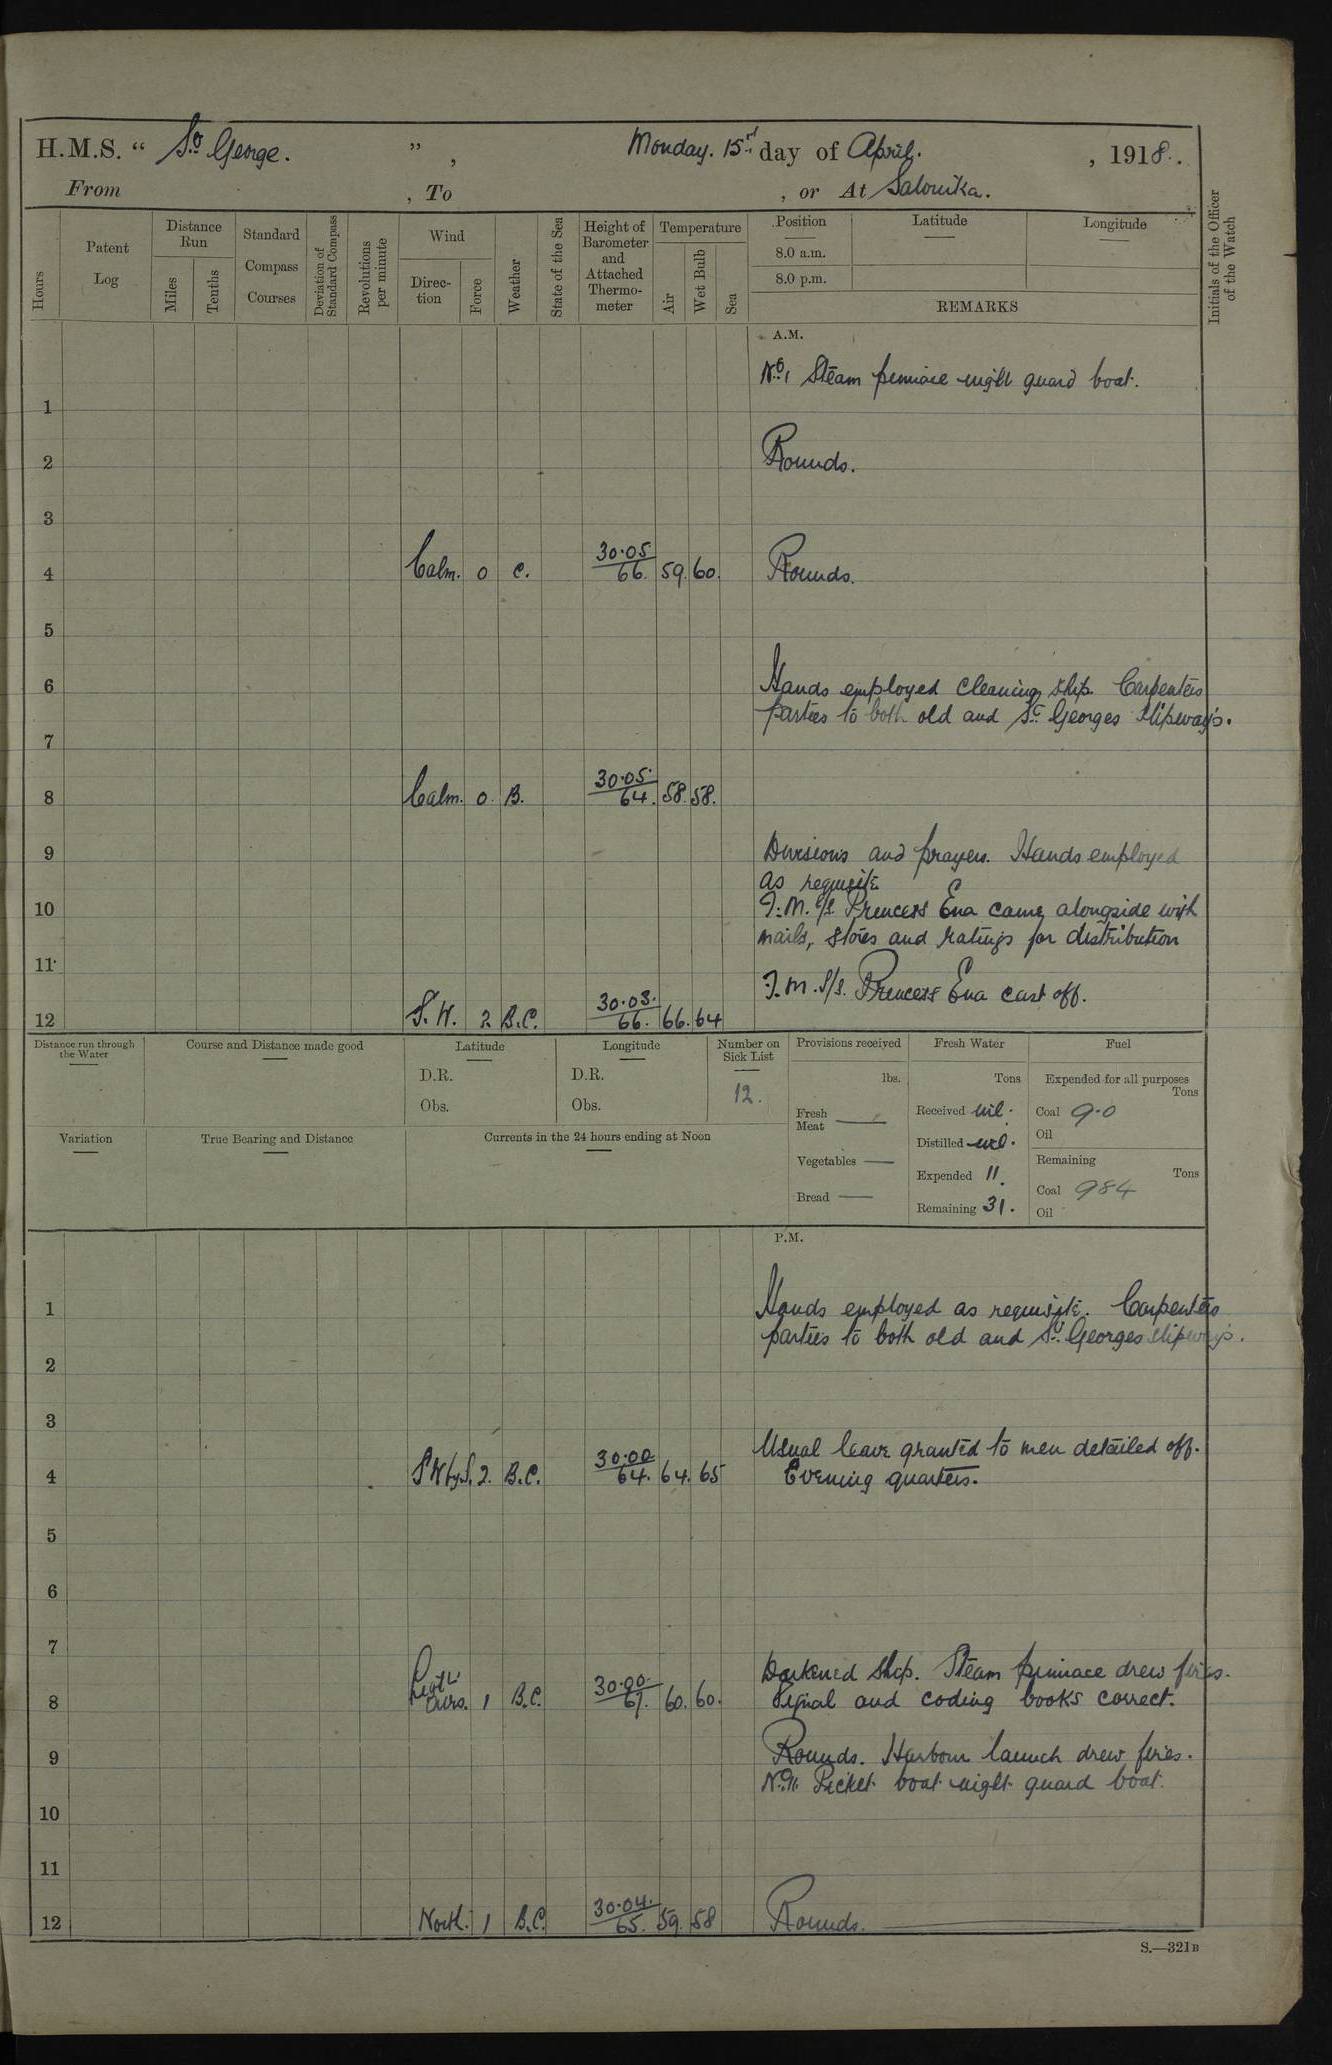 H.M.S. “ St George. ” , Monday. 15th day of April. , 1918.
From , To , or At Salonika.
Hours
Patent Log
Distance Run
Miles
Tenths
Standard Compass Courses
Deviation of Standard Compass
Revolutions per minute
Wind
Direc-tion
Force
Weather
State of the Sea
Height of Barometer and Attached Thermo-meter
Temperature
Air
Wet Bulb
Sea
Position
Latitude
Longitude
8.0 a.m.
8.0 p.m.
REMARKS
Initials of the Officer of the Watch
A.M.
No 1 Steam pinnace night guard boat.
1
2 Rounds.
3
4 Calm. 0 C. 30.05/66. 59. 60. Rounds.
5
6 Hands employed cleaning ship. Carpenters
parties to both old and St Georges slipways.
7
8 Calm. 0. B. 30.05./64. 58. 58.
9 Divisions and prayers. Hands employed
as requisite
10 F.M. S/S. Princess Ena came alongside with
mails, stores and ratings for distribution
11
F.M. S/S. Princess Ena cast off.
12 S.W. 2 B.C. 30.03./66. 66. 64
Distance run through the Water
Course and Distance made good
Latitude
D.R.
Obs.
Longitude
D.R.
Obs.
Number on Sick List
12.
Provisions received
lbs.
Fresh Meat —
Vegetables —
Bread —
Fresh Water
Tons
Received nil.
Distilled nil.
Expended 11.
Remaining 31.
Fuel
Expended for all purposes
Tons
Coal 9.0
Oil
Remaining
Tons
Coal 984
Oil
Variation
True Bearing and Distance
Currents in the 24 hours ending at Noon
P.M.
1 Hands employed as requisite. Carpenters
parties to both old and St Georges slipways.
2
3
Usual leave granted to men detailed off.
4 SWbyS. 2. B.C. 30.00/64. 64. 65 Evening quarters.
5
6
7
Darkened ship. Steam pinnace drew fires.
8 Light airs. 1 B.C. 30.00./67. 60. 60. Signal and coding books correct.
9 Rounds. Harbour launch drew fires.
Picket boat night guard boat.
10
11
12 North. 1 B.C. 30.04./65. 59. 58 Rounds.
S.—321B